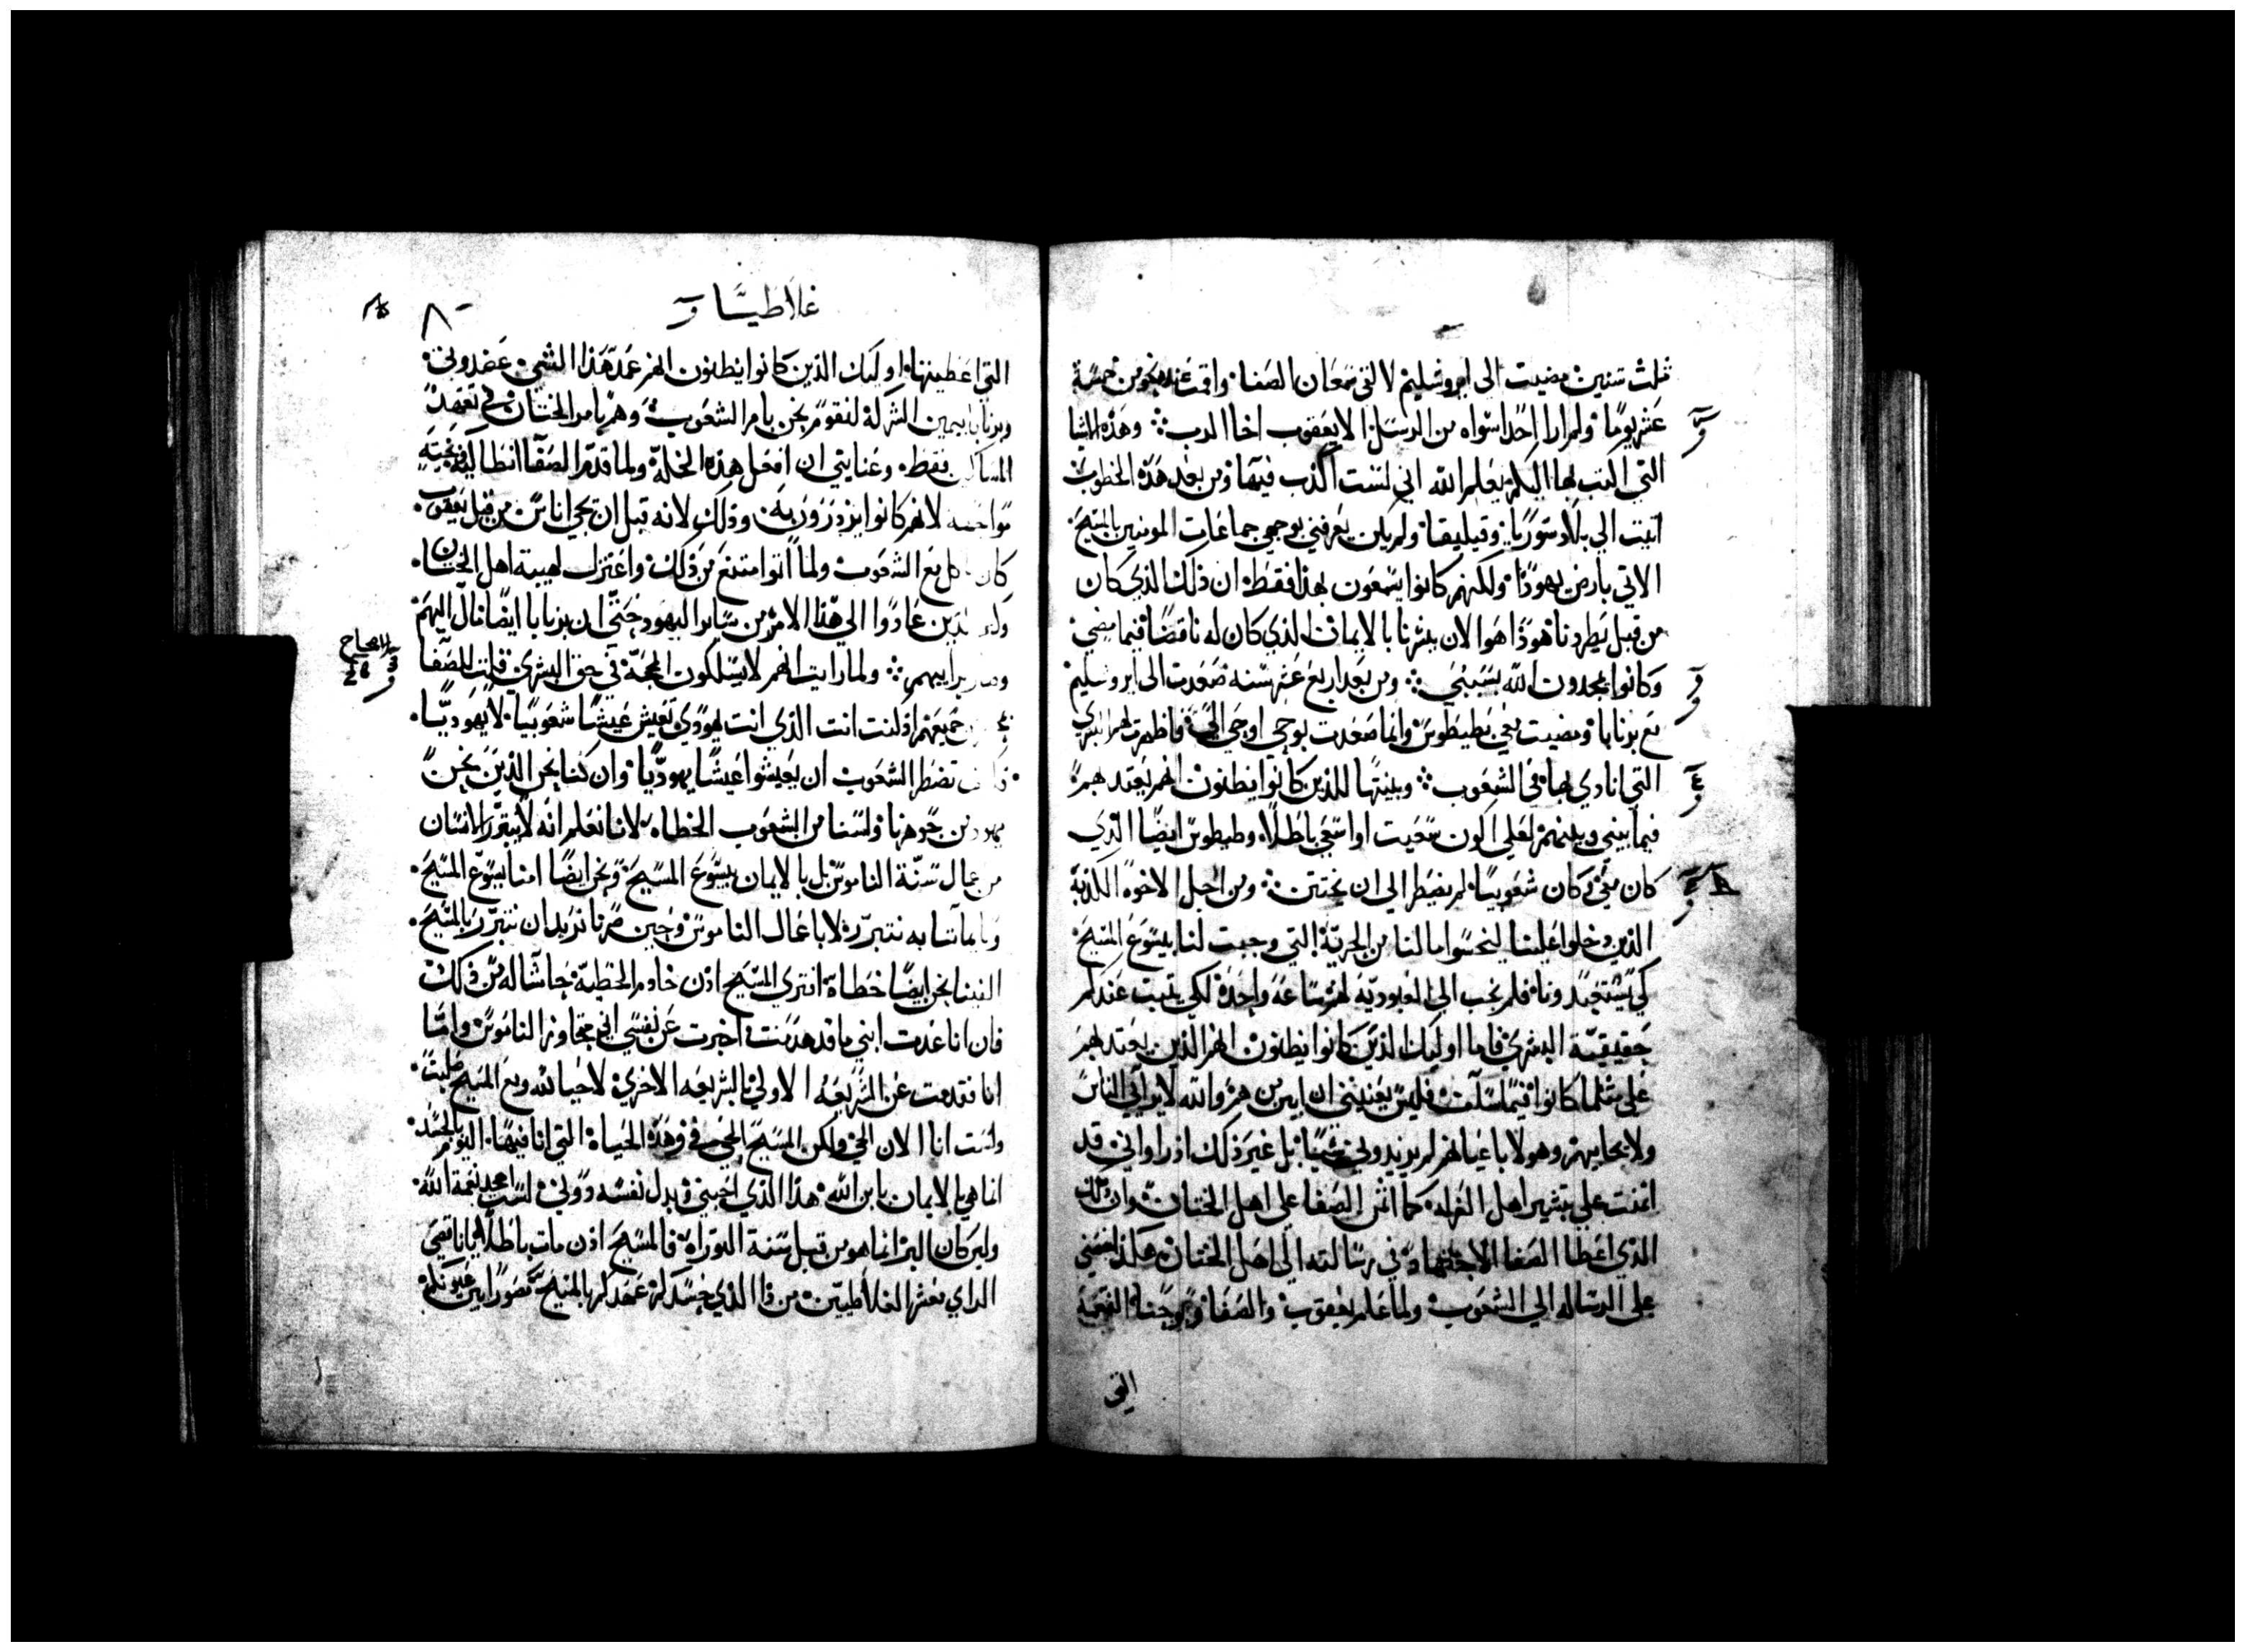 ثلث سنين مضيت الى ايروشليم لالتقي سمعان الصفا واقمت عنده نحو من خمسة
عشر يومًا ولم ارا احدًا سواه من الرسل الا يعقوب اخا الرب وهذه الاشيا
التي اكتب بها اليكم يعلم الله اني لست اكذب فيها ومن بعد هذه الخطوب
اتيت الي بلاد سوريا وقيليقا ولم يكن يعرفني بوجهي جماعات المومنين بالمسيح
الاتي بارض يهوذا ولكنهم كانوا يسمعون بهذا فقط ان ذلك الذي كان
من قبل يطردنا هوذا هوا الان يبشرنا بالايمان الذي كان له ناقضًا فيما مضي
وكانوا يمجدون الله بسببي ومن بعد اربع عشر سنه صعدت الى ايروشليم
مع برنابا ومضيت معي بطيطوس وانما صعدت بوحي اوحي الي فاظهرت لهم البشري
التي انادي بها في الشعوب وبينتها للذين كانوا يظنون انهم يعتد بهم
فيما بيني وبينهم لعلي اكون سعيت او اسعي باطلاً وطيطوس ايضًا الذي
كان معي وكان شعوبيًا لم يضطر الي ان يختتن ومن اجل الاخوه الكذبة
الذين دخلوا علينا ليتحسوا ما لنا من الحرية التي وجبت لنا بيسوع المسيح
كي يستعبدونا فلم نجب الى العبودية لهم ساعة واحدة لكي يثبت عندكم
حقيقية البشري فاما اوليك الذين كانوا يظنون انهم الذين يعتد بهم
على مثلما كانوا فيما سلف فليس يعنيني ان ابين من هم والله لا يرابي الناس
ولا يحابيهم وهولا باعيانهم لم يزيدوني شيًا بل غير ذلك اذ راوا اني قد
اتمنت على تبشير اهل الغرله كما اتمن الصفا علي اهل الختان وان ذلك
الذي اعطا الصفا الاجتهاد في رسالته الى اهل الختان هكذا
علي الرساله الي الشعوب ولما علم يعقوب والصفا ويوحنا النعمة
التي
غلاطيسا
٨٠
التي اعطيتها اوليك الذين كانوا يظنون انهم عمد هذا الشي عضدوني
وبرنابا بيمين الشركة لنقوم نحن بامر الشعوب وهم بامر الختان في تعهد
المساكين فقط وعنايتي ان افعل هذه الخلة ولما قدم الصفا انطاكيه وبخته
مواجهه لانهم كانوا يزدرون به وذلك لانه قبل ان تجي اناس من قبل يعقوب
كان ياكل مع الشعوب ولما اتوا امتنع من ذلك واعتزل لهيبة اهل الختان
والذين عادوا الي هذا الامر من ساير اليهود حتى ان برنابا ايضًا مال اليهم
ولما رايت انهم لا يسلكون المحجة في حق البشري قلت للصفا
جميعهم اذ كنت انت الذي انت يهودي تعيش عيشًا شعوبيًا لا يهوديًا
تضطر الشعوب ان يعيشوا عيشًا يهوديًا وان كنا نحن الذين نحن
يهود من جوهرنا ولسنا من الشعوب الخطاه لانا نعلم انه لا يتبرر الانسان
من اعمال سنة الناموس بل بالايمان بيسوع المسيح ونحن ايضًا امنا بيسوع المسيح
وبايماننا به نتبرر لا باعمال الناموس وحين صرنا نريد ان نتبرر بالمسيح
الفينا نحن ايضًا خطاة افترى المسيح اذن خادم الخطية حاشا له من ذلك
فان انا عدت ابني ما قد هدمت اخبرت عن نفسي اني متجاوز الناموس وامًا
انا فقد مت عن الشريعة الاولي بالشريعه الاخري لاحيا لله ومع المسيح صلبت
ولست انا الان الحي ولكن المسيح الحي في وهذه الحياة التي انا فيها اليوم بالجسد
انما هي بالايمان بابن الله هذا الذي احبني وبدل نفسه دوني لست اجحد نعمة الله
ولين كان البر انما هو من قبل سنة التوراة فالمسيح اذن مات باطلاً
الراي معشر الغلاطيين من ذا الذي حسدكم